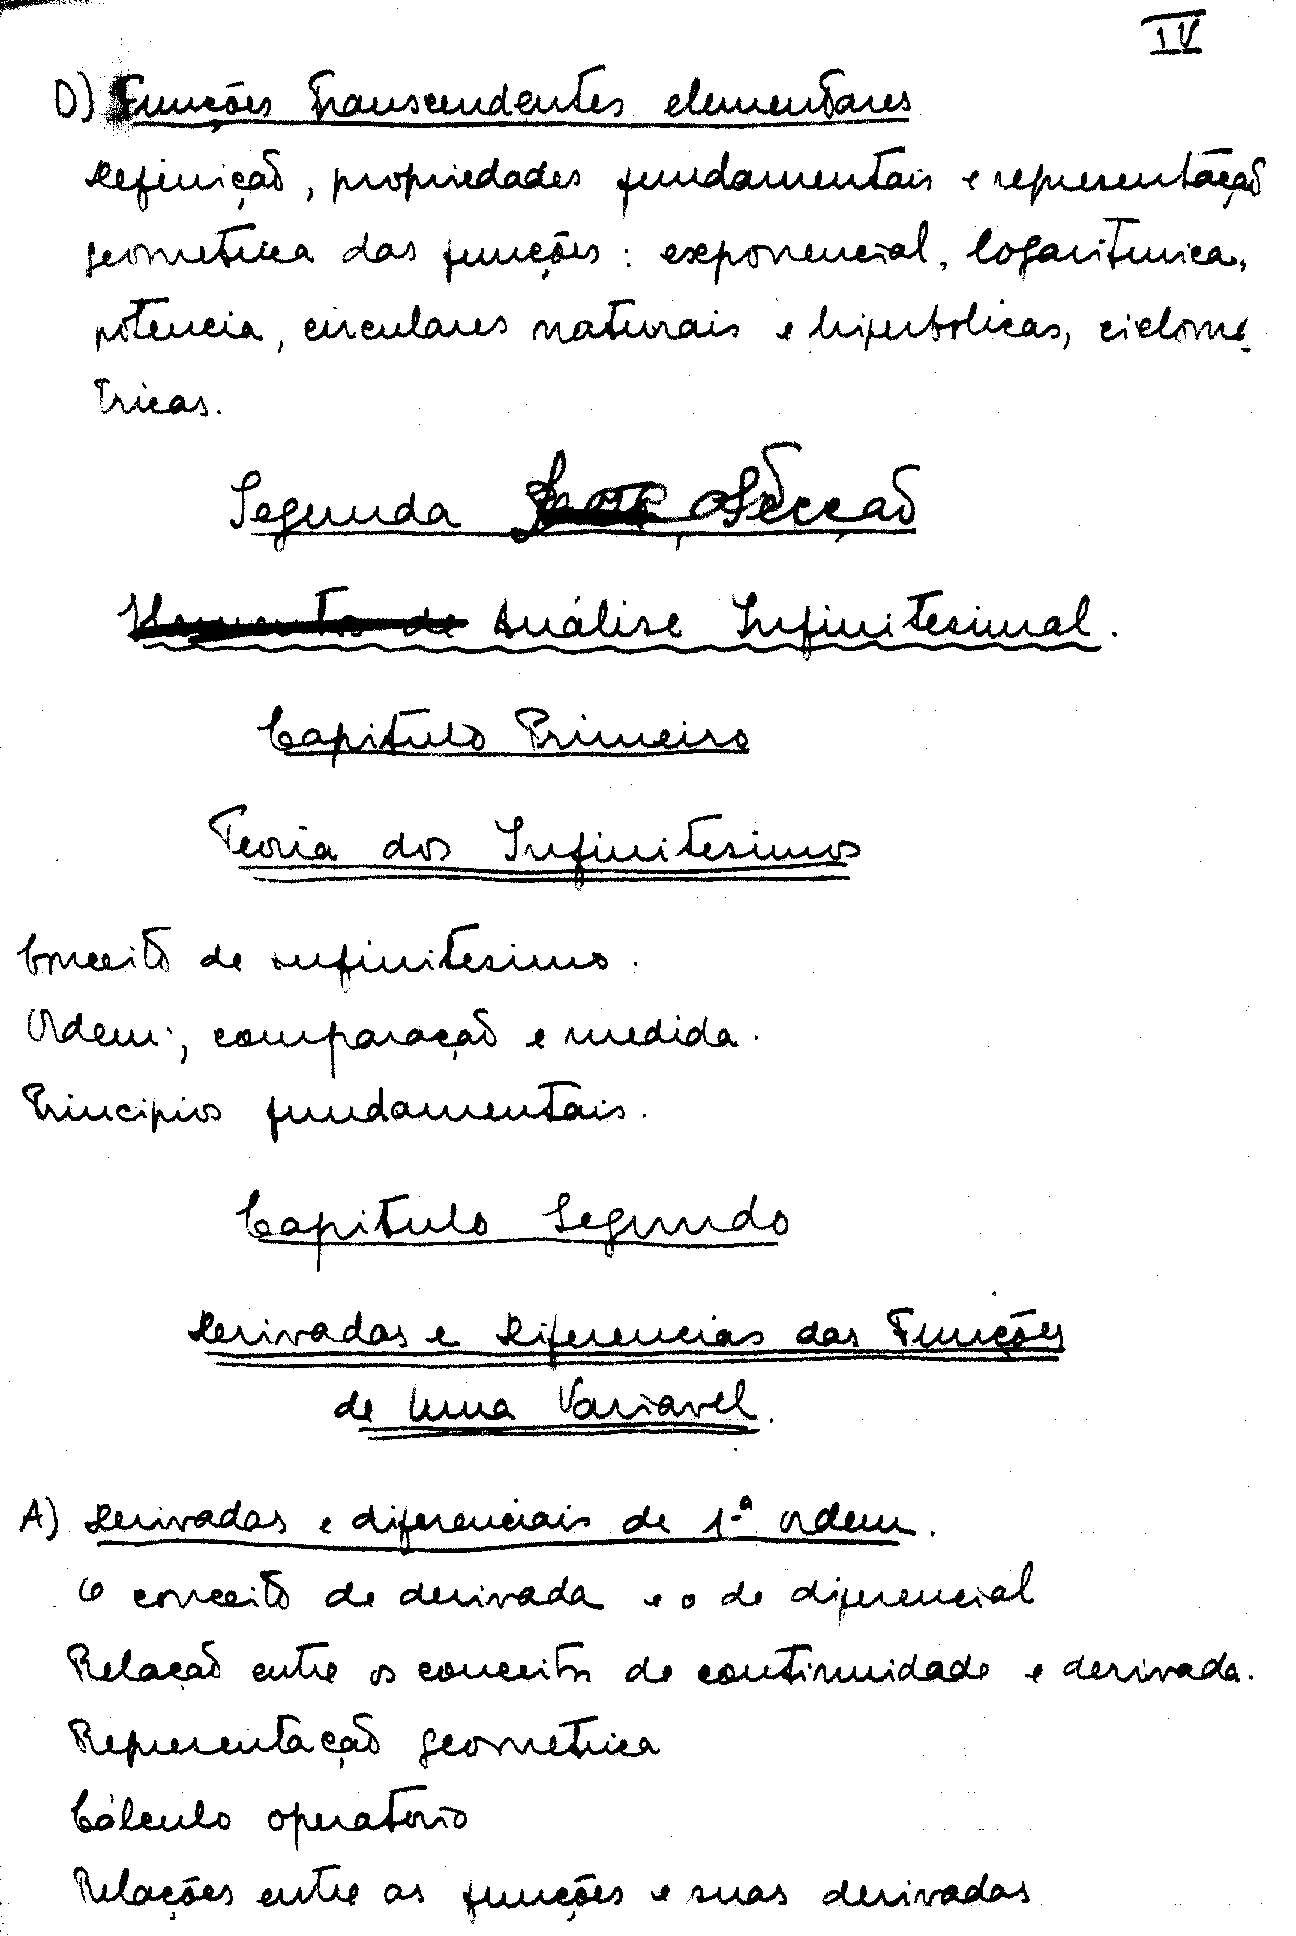 IV
D) Funções Transcendentes elementares
Definição, propriedades fundamentais e representação
geometrica das funções: exponencial, logaritmica,
potencia, circulares naturais e hiperbolicas, ciclomé-
tricas.
Segunda Secção
Análise Infinitesimal.
Capitulo Primeiro
Teoria dos Infinitesimos
Conceito de infinitesimo.
Ordem; comparação e medida.
Principios fundamentais.
Capitulo Segundo
Derivadas e Diferencias das Funções
de Uma Variavel.
A) Derivadas e diferenciais de 1.ª ordem.
O conceito de derivada e o de diferencial
Relação entre os conceitos de continuidade e derivada.
Representação geometrica
Cálculo operatorio
Relações entre as funções e suas derivadas